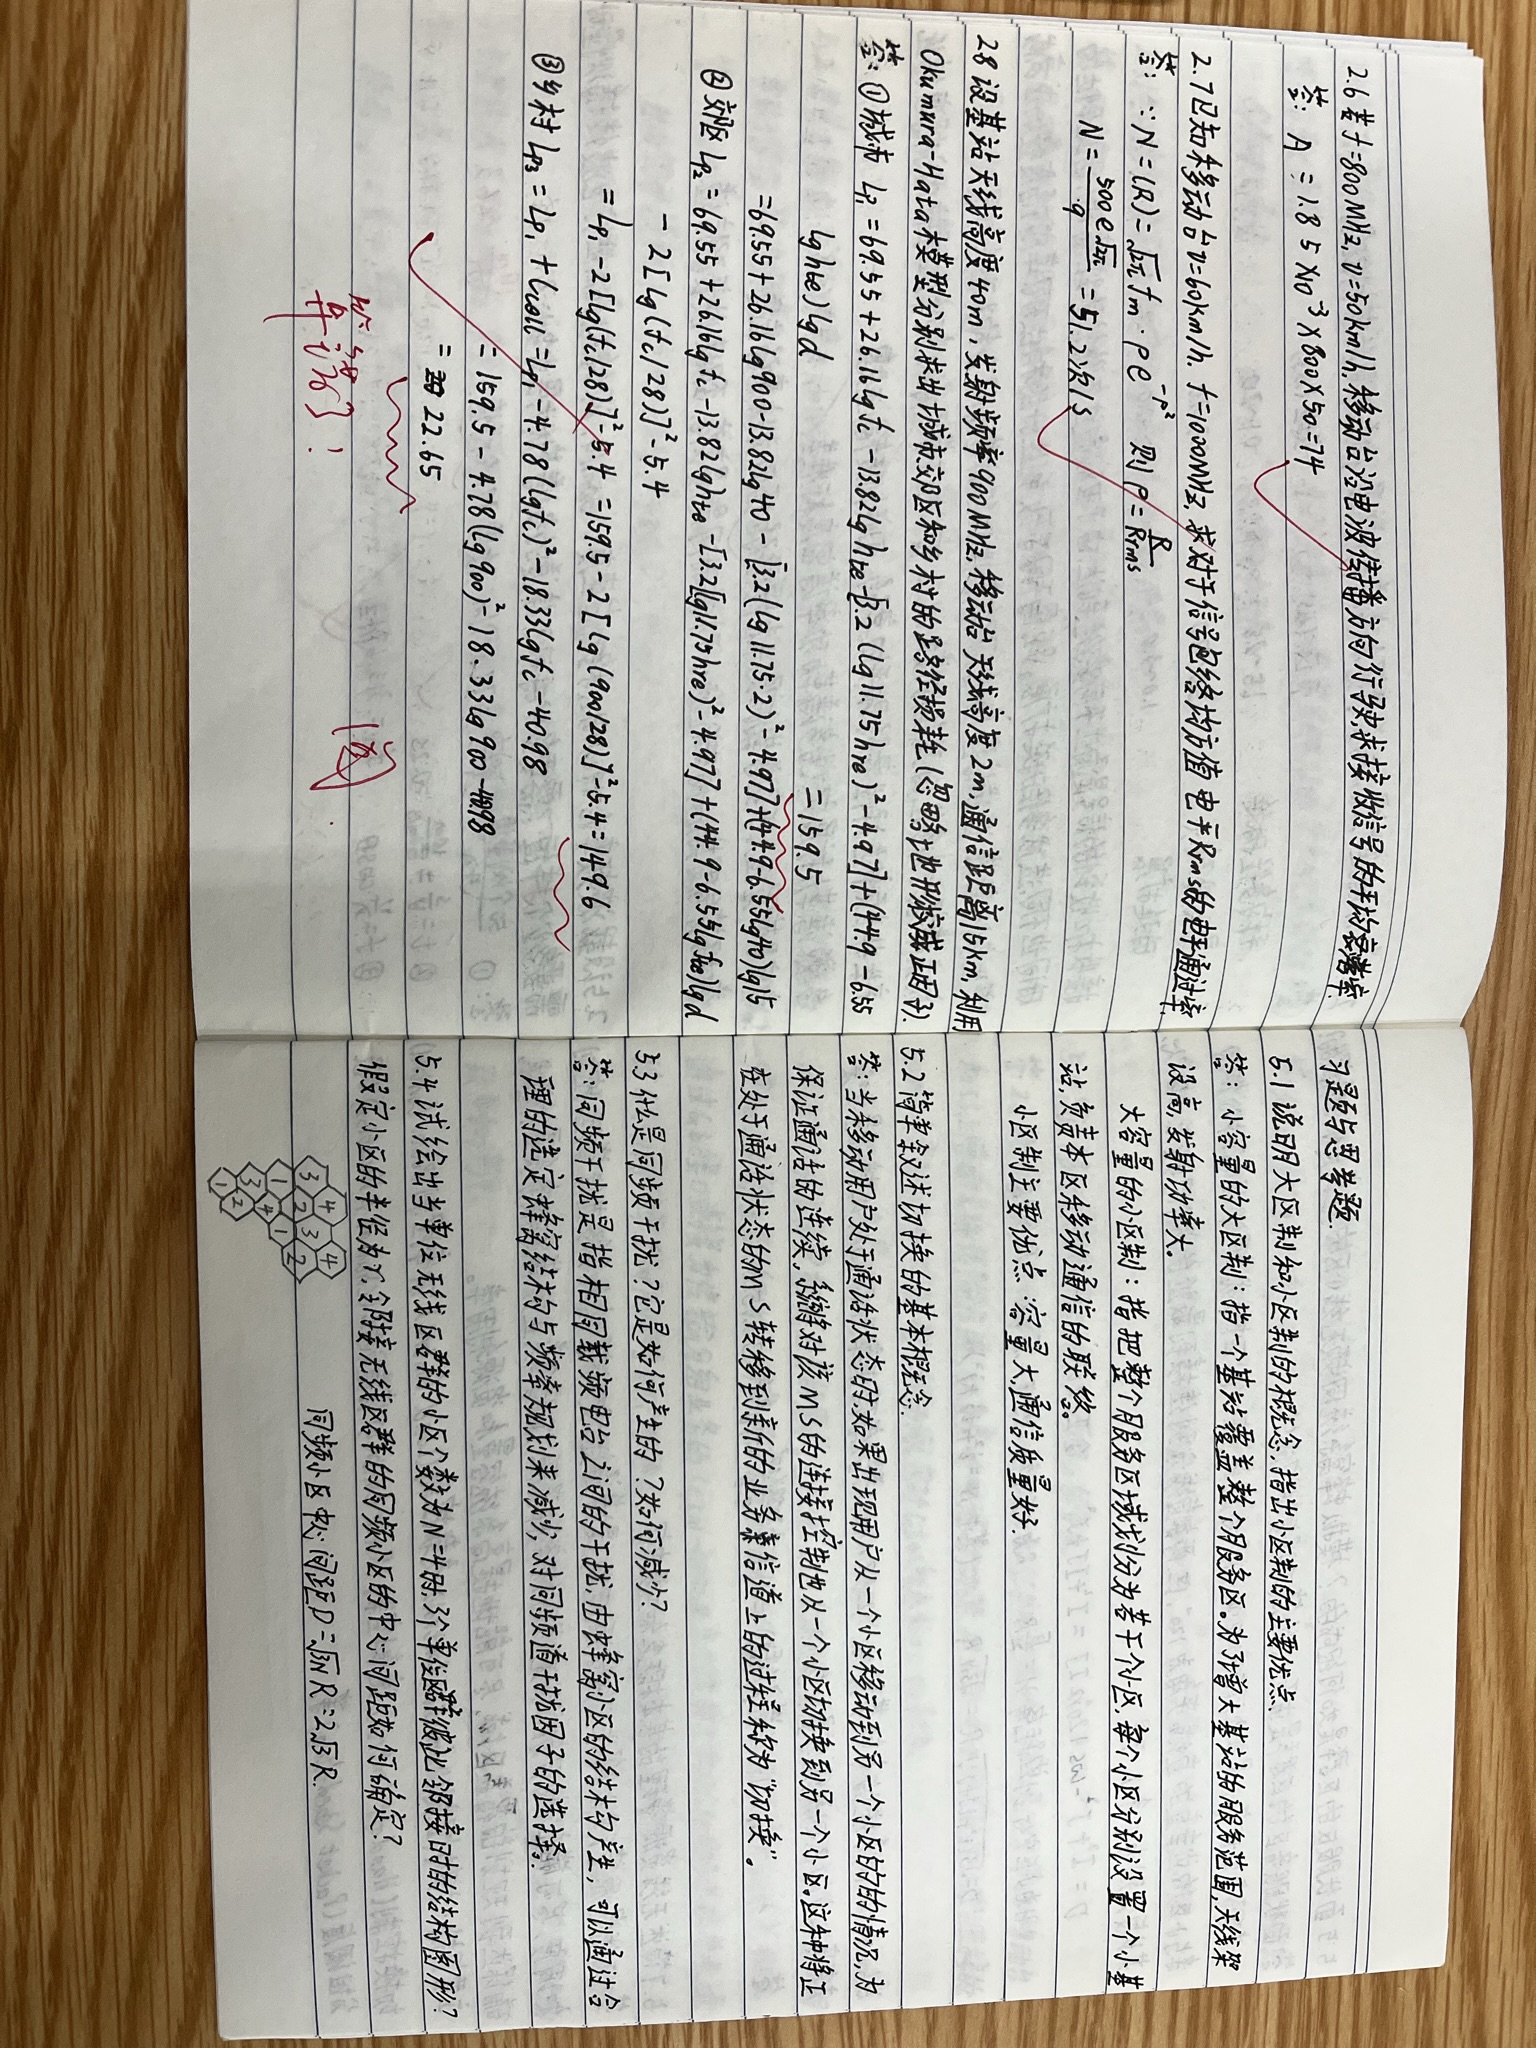 2.6 若f=800MHz, v=50km/h, 移动台沿电波传播方向行驶,求接收信号的平均衰落率
答: A = 1.85×10³×800×50=74
2.7 已知移动台v=60km/h. f=1000MHz, 求对于信号包络均方值电平Rrms的电平通过率
答: ∵N=(R)=√2π fm·ρe^-ρ² 则ρ=R/Rrms
N= 500e√2π/9 =51.2次/s
2.8 设基站天线高度40m,发射频率900MHz,移动站天线高度2m,通信距离15km,利用
Okumura-Hata模型分别求出城市,郊区和乡村的路径损耗(忽略地形校正因子).
答: ①城市 Lp₁=69.55+26.16lgfc-13.82lghte-[3.2(lg11.75hre)²-4.97]+(44.9-6.55
lghte)lgd
=69.55+26.16lg900-13.82lg40-[3.2(lg11.75·2)²-4.97]+(44.9-6.55lg40)lg15
=159.5
②郊区Lp₂=69.55+26.16lgfc-13.82lghte-[3.2(lg11.75hre)²-4.97]+(44.9-6.55lghte)lgd
-2[lg(fc/28)]²-5.4
=Lp₁-2[lg(fc/28)]²-5.4=159.5-2[lg(900/28)]²-5.4=149.6
③乡村Lp₃=Lp₁+Lcell=Lp₁-4.78(lgfc)²-18.33lgfc-40.98
=159.5-4.78(lg900)²-18.33lg900-40.98
=22.65
答案
算错了!
习题与思考题
5.1 说明大区制和小区制的概念,指出小区制的主要优点
答: 小容量的大区制:指一个基站覆盖整个服务区。为了增大基站的服务范围,天线架
设高,发射功率大。
大容量的小区制:指把整个服务区域划分为若干个小区,每个小区分别设置一个小基
站,负责本区移动通信的联络。
小区制主要优点:容量大,通信质量好.
5.2 简单叙述切换的基本概念.
答:当移动用户处于通话状态时,如果出现用户从一个小区移动到另一个小区的的情况,为
保证通话的连续,系统将对该MS的连接控制也从一个小区切换到另一个小区。这种将正
在处于通话状态的MS转移到新的业务信道上的过程称为"切换"。
5.3 什么是同频干扰?它是如何产生的?如何减少?
答:同频干扰是指相同载频电台之间的干扰,由蜂窝小区的结构产生,可以通过合
理的选定蜂窝结构与频率规划来减少,对同频道干扰因子的选择。
5.4 试绘出当单位无线区群的小区个数为N=4时,3个单位区群彼此邻接时的结构图形?
假定小区的半径为r,邻接无线区群的同频小区的中心间距如何确定?
3 4
1 2 3 4
3 4 1 2
1 2
同频小区中心间距D=√3N R=2√3R.